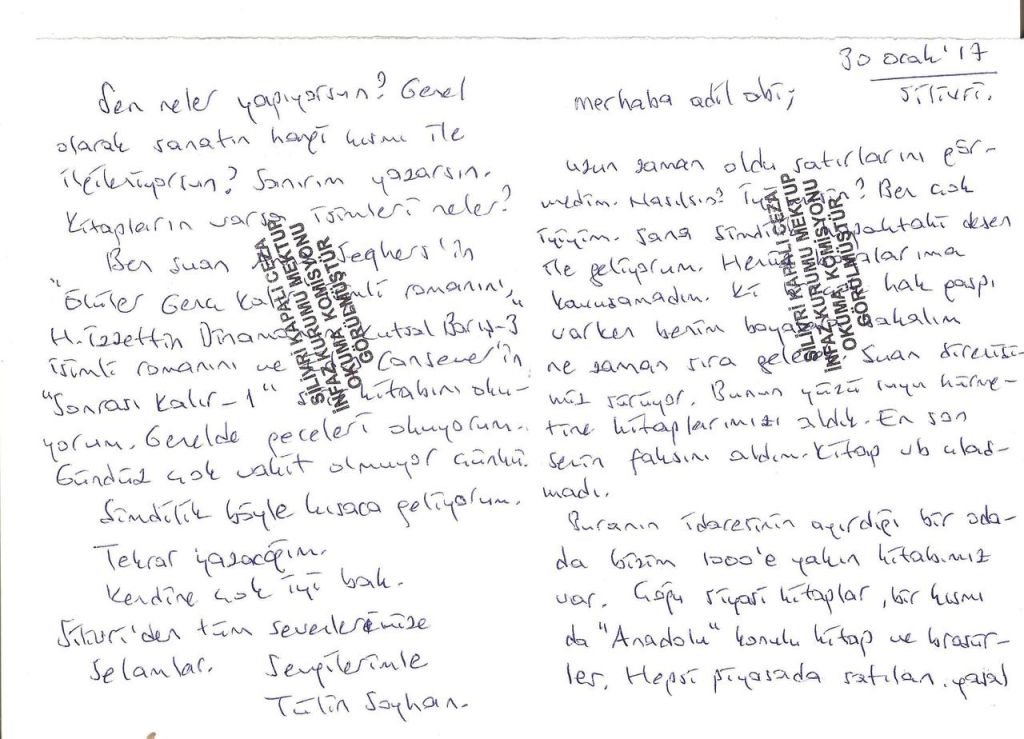 30 Ocak '17
Silivri.
merhaba adil abi;
uzun zaman oldu satırlarını gör-
medim. Nasılsın? İyi misin? Ben çok
iyiyim. Sana şimdi kapaktaki desen
ile geliyorum. Henüz boyalarıma
kavuşamadım. Ki hak gaspı
varken benim boya bakalım
ne zaman sıra gelecek. Şuan direnişi-
miz sürüyor. Bunun yüzü suyu hürme-
tine kitaplarımızı aldık. En son
senin faksını aldım. Kitap vb ulaş-
madı.
Buranın idaresinin ayırdığı bir oda-
da bizim 1000'e yakın kitabımız
var. Çoğu siyasi kitaplar, bir kısmı
da "Anadolu" konulu kitap ve broşür-
ler. Hepsi piyasada satılan, yasal
Sen neler yapıyorsun? Genel
olarak sanatın hangi kısmı ile
ilgileniyorsun? Sanırım yazarsın.
Kitapların varsa isimleri neler?
Ben şuan Seghers'in
"Ölüler Genç Kalır" isimli romanını,
H. İzzettin Dinamo'nun "Kutsal Barış-3"
isimli romanını ve Cansever'in
"Sonrası Kalır-1" kitabını oku-
yorum. Genelde geceleri okuyorum.
Gündüz çok vakit olmuyor çünkü.
Şimdilik böyle kısaca geliyorum.
Tekrar yazacağım.
Kendine çok iyi bak.
Silivri'den tüm sevenlerimize
selamlar. Sevgilerimle
Tülin Soyhan.
SİLİVRİ KAPALI CEZA
İNFAZ KURUMU MEKTUP
OKUMA KOMİSYONU
GÖRÜLMÜŞTÜR
SİLİVRİ KAPALI CEZA
İNFAZ KURUMU MEKTUP
OKUMA KOMİSYONU
GÖRÜLMÜŞTÜR